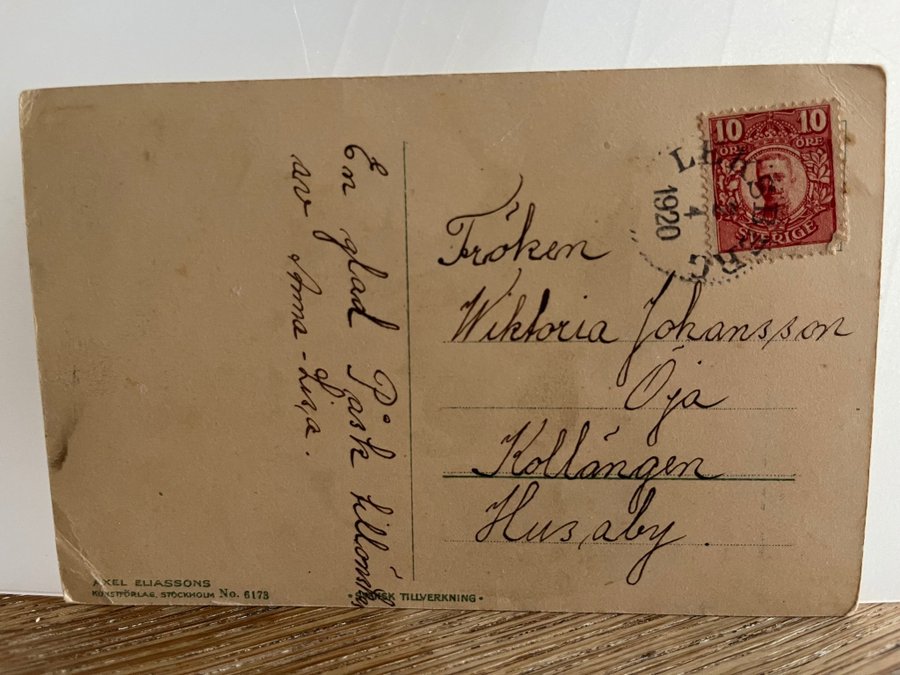 En glad Påsk tillönskas
av Anna-Lisa.
Fröken
Wiktoria Johansson
Öja
Kollängen
Husaby.
10 10
ÖRE ÖRE
SVERIGE
4
1920
AXEL ELIASSONS
KONSTFÖRLAG, STOCKHOLM No. 6173
• SVENSK TILLVERKNING •